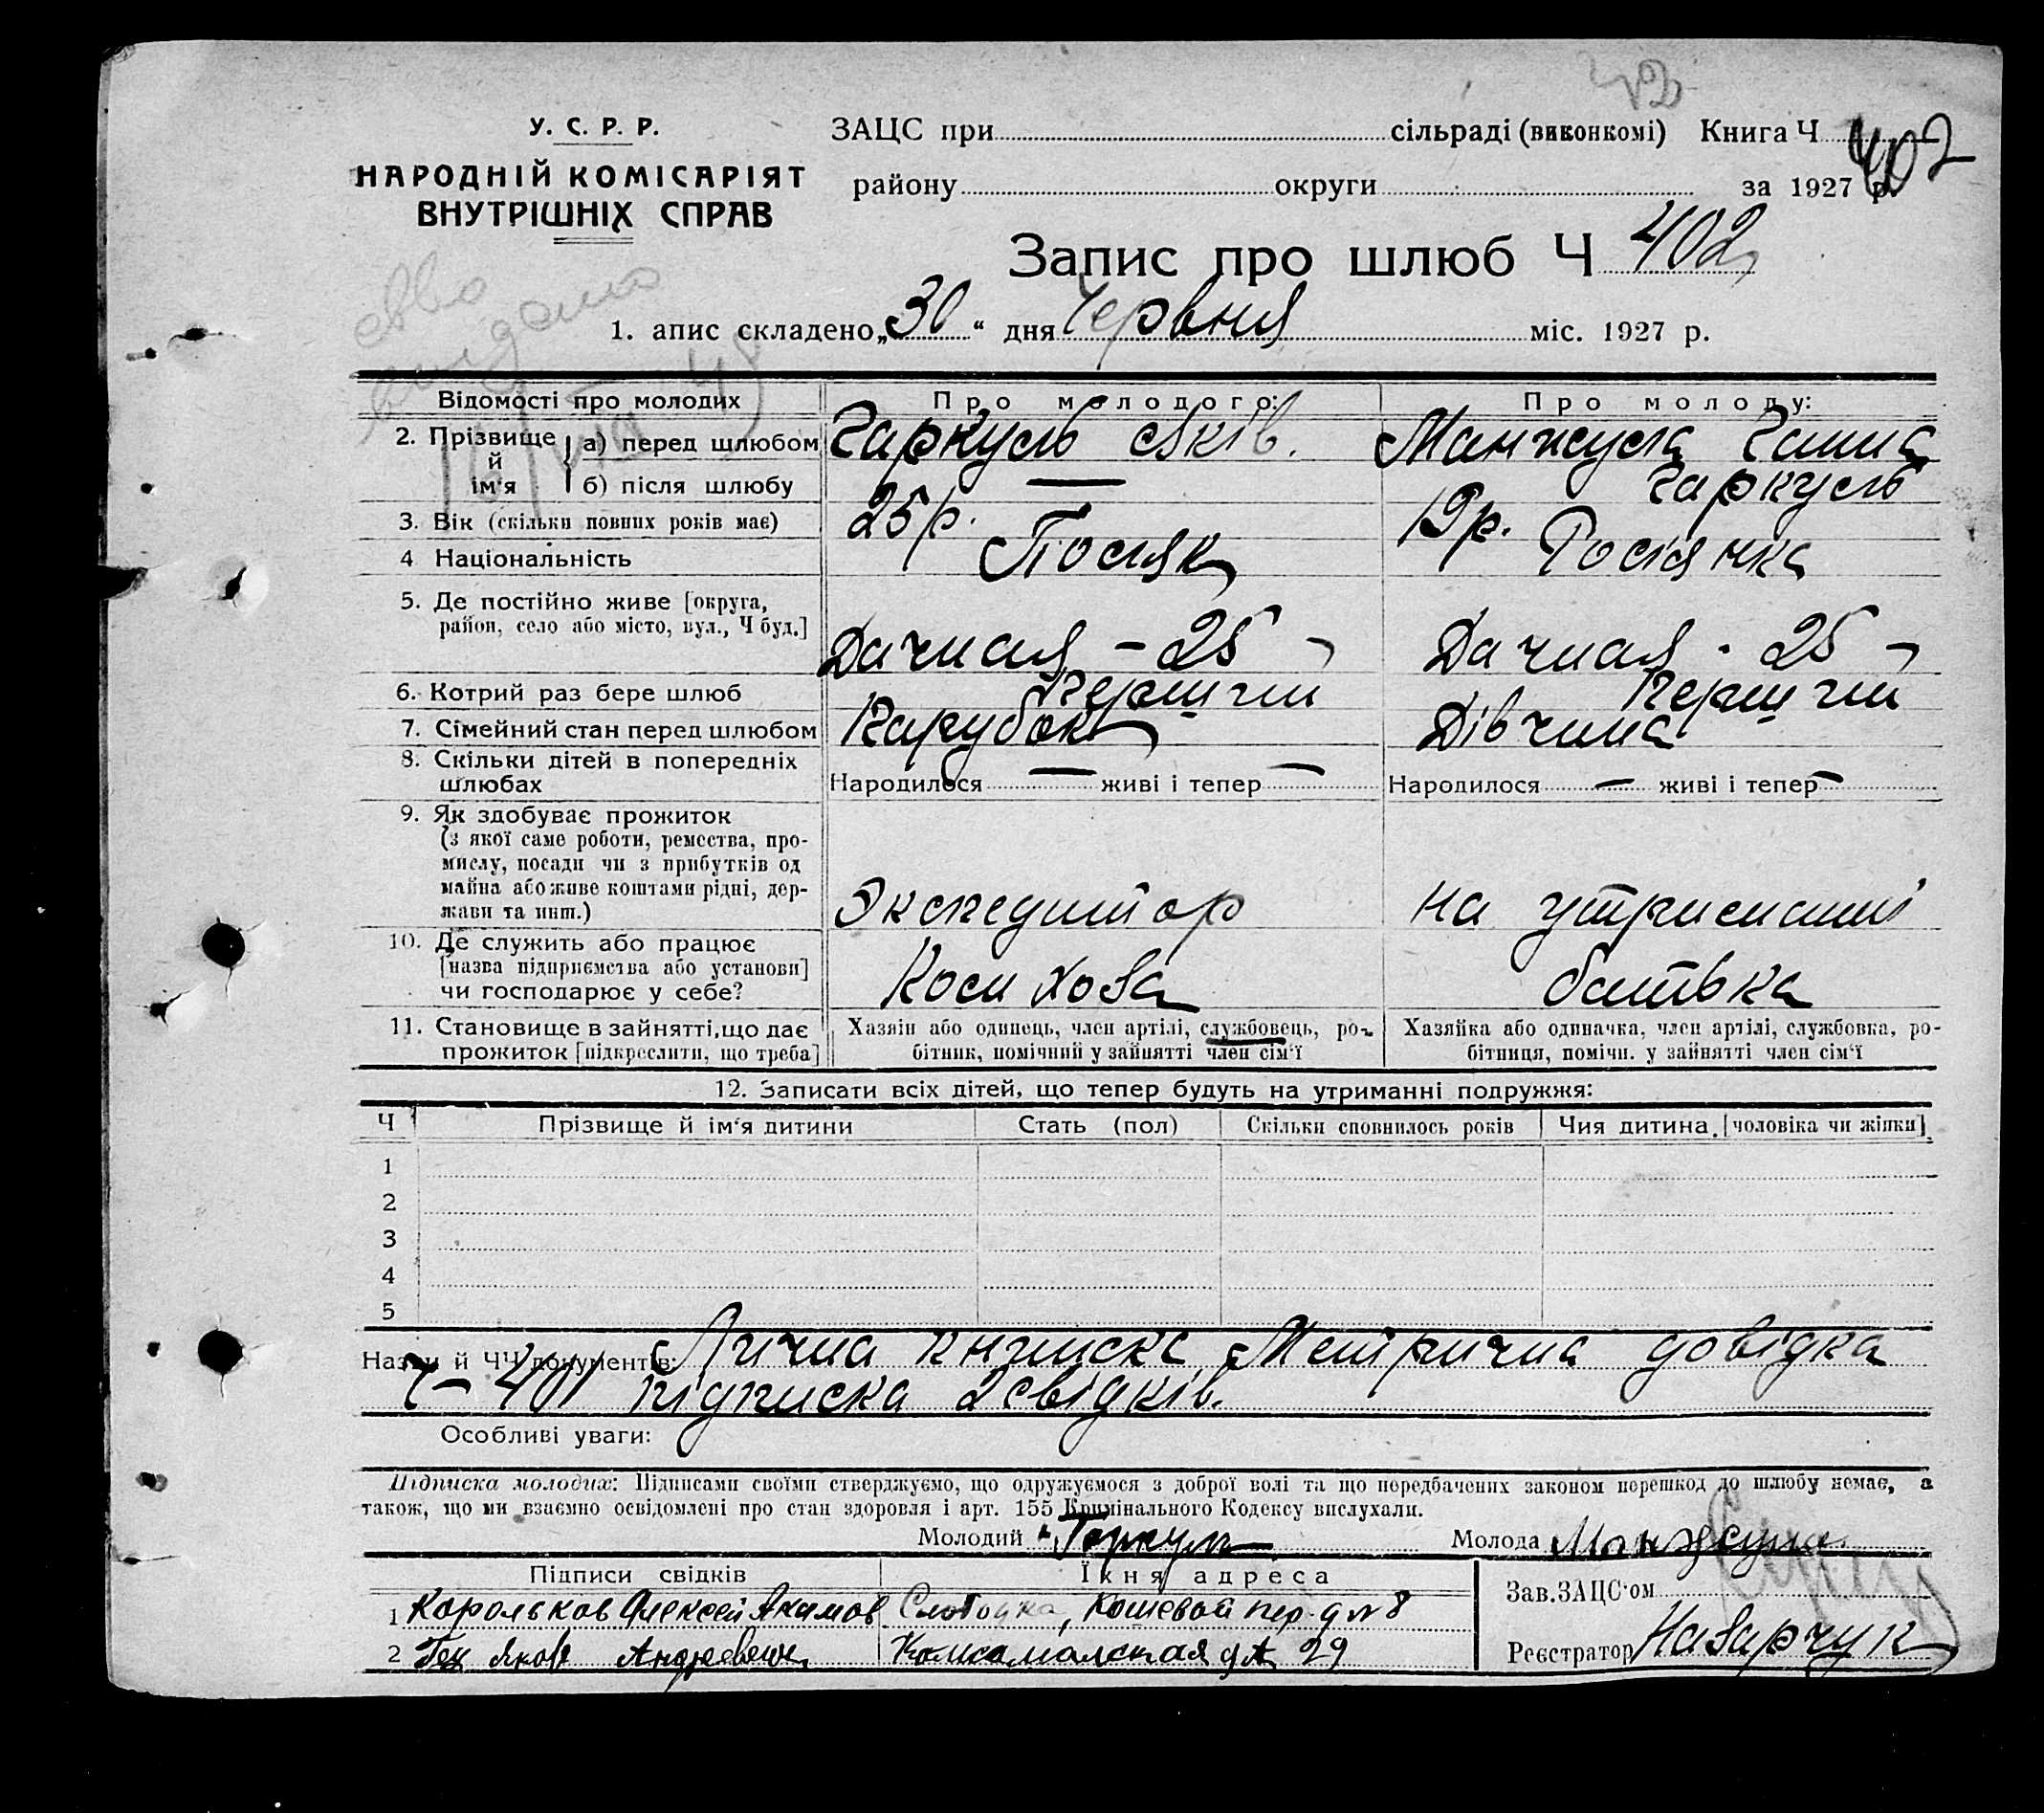 У. С. Р. Р.
НАРОДНІЙ КОМІСАРІЯТ
ВНУТРІШНІХ СПРАВ
ЗАЦС при сільраді (виконкомі) Книга Ч 402
району округи за 1927 р.
Запис про шлюб Ч 402
1. апис складено „30“ дня Червня міс. 1927 р.
Відомості про молодих Про молодого: Про молоду:
2. Прізвище й ім'я а) перед шлюбом Гаркуль Яків. Манжула Ганна
б) після шлюбу — Гаркуль
3. Вік (скільки повних років має) 25 р. 19 р.
4 Національність Поляк Росіянка
5. Де постійно живе [округа,
район, село або місто, вул., Ч буд.] Дачная – 25 Дачная - 25
6. Котрий раз бере шлюб Перший Перший
7. Сімейний стан перед шлюбом Парубок Дівчина
8. Скільки дітей в попередніх
шлюбах Народилося — живі і тепер — Народилося — живі і тепер —
9. Як здобуває прожиток
(з якої саме роботи, ремества, про-
мислу, посади чи з прибутків од
майна або живе коштами рідні, дер-
жави та инш.) Экспедитор на утриманні
10. Де служить або працює
[назва підприємства або установи]
чи господарює у себе? батька
11. Становище в зайнятті, що дає
прожиток [підкреслити, що треба]
Хазяін або одинець, член артілі, службовець, ро-
бітник, помічний у зайнятті член сім'ї
Хазяйка або одиначка, член артілі, службовка, ро-
бітниця, помічн. у зайнятті член сім'ї
12. Записати всіх дітей, що тепер будуть на утриманні подружжя:
Ч Прізвище й ім'я дитини Стать (пол) Скільки сповнилось років Чия дитина [чоловіка чи жінки]
1
2
3
4
5
Назви й ЧЧ документів: Лична книжка, Метрична довідка
Ч – 401 підписка 2 свідків.
Особливі уваги:
Підписка молодих: Підписами своїми стверджуємо, що одружуємося з доброї волі та що передбачених законом перешкод до шлюбу немає, а
також, що ми взаємно освідомлені про стан здоровля і арт. 155 Кримінального Кодексу вислухали.
Молодий Гаркуль Молода Манжула
Підписи свідків Їхня адреса
1 Корольков Алексей Акимов Слободка, Кошевой пер. д № 8
2 Яков Андреевич Комсомолская д № 29
Зав. ЗАЦС'ом
Реєстратор Назарчук